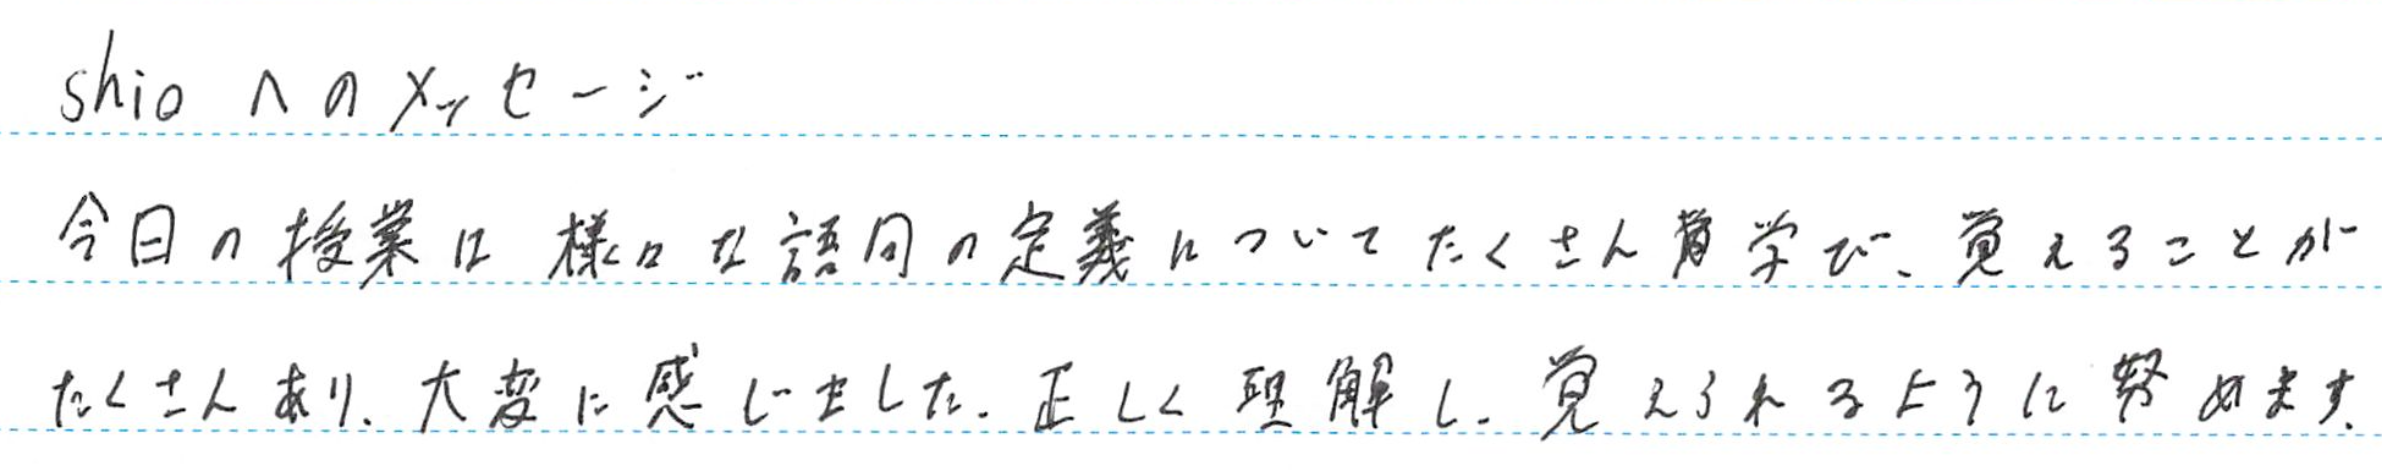 shioへのメッセージ
今日の授業は様々な語句の定義についてたくさん学び、覚えることが
たくさんあり、大変に感じました。正しく理解し、覚えられるように努めます。